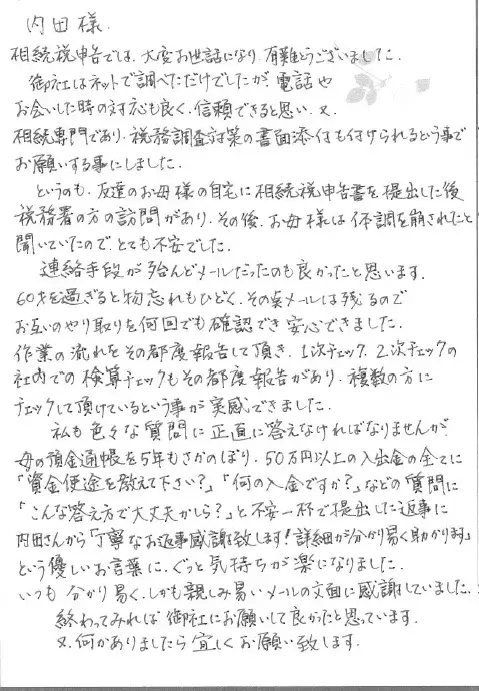 内田様.
相続税申告では、大変お世話になり、有難とうございました.
御社はネットで調べただけでしたが、電話や
お会いした時の対応も良く、信頼できると思い、又、
相続専門であり、税務調査対策の書面添付も付けられるという事で
お願いする事にしました.
というのも、友達のお母様の自宅に相続税申告書を提出した後
税務署の方の訪問があり、その後、お母様は体調を崩されたと
聞いていたので、とても不安でした.
連絡手段が殆んどメールだったのも良かったと思います.
60才を過ぎると物忘れもひどく、その点メールは残るので
お互いのやり取りを何回でも確認でき安心できました.
作業の流れをその都度報告して頂き、1次チェック、2次チェックの
社内での検算チェックもその都度報告があり、複数の方に
チェックして頂けているという事が実感できました.
私も色々な質問に正直に答えなければなりませんが、
母の預金通帳を5年もさかのぼり、50万円以上の入出金の全てに
「資金使途を教えて下さい?」「何の入金ですか?」などの質問に
「こんな答え方で大丈夫かしら?」と不安一杯で提出した返事に
内田さんから「丁寧なお返事感謝致します!詳細が分かり易く助かります」
という優しいお言葉に、ぐっと気持ちが楽になりました.
いつも分かり易く、しかも親しみ易いメールの文面に感謝していました.
終わってみれば御社にお願いして良かったと思っています.
又、何かありましたら宜しくお願い致します.